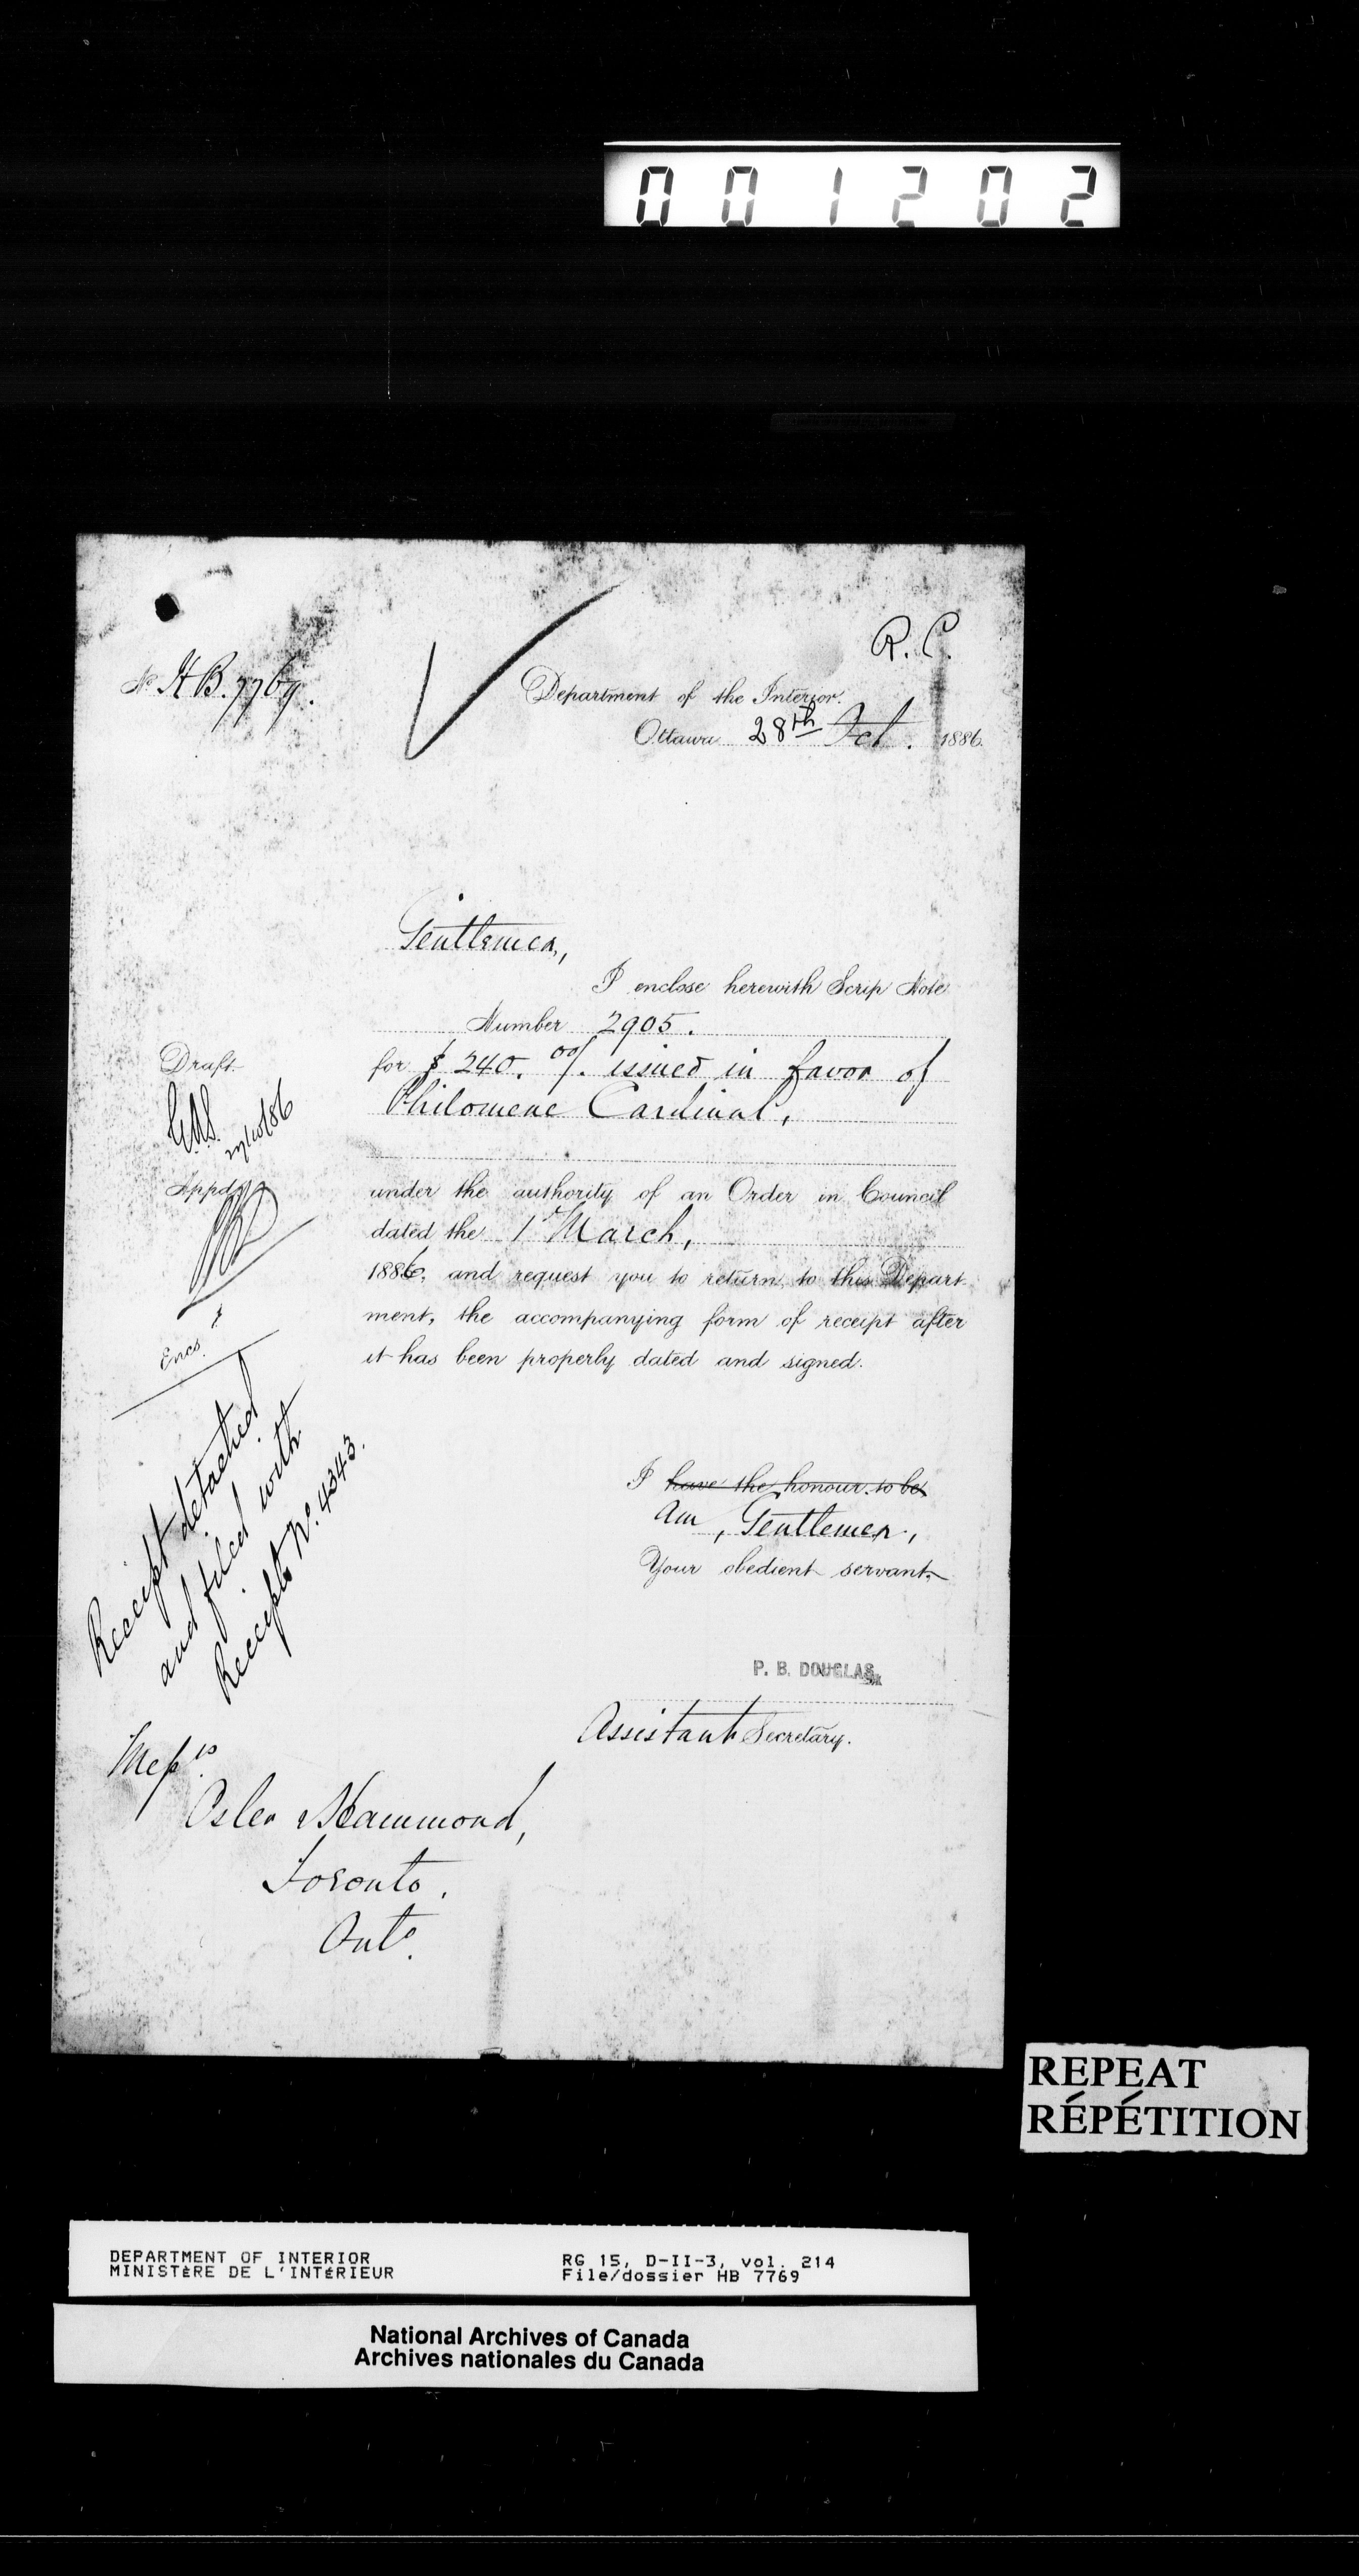 001202
R. C.
No HB. 7769.
Department of the Interior.
Ottawa 28th Oct. 1886.
Gentlemen,
I enclose herewith Scrip Note
Number 2905.
Draft
for $ 240. 00/. issued in favor of
Philomene Cardinal,
27/10/86
Appd
under the authority of an Order in Council
dated the 1st March,
1886, and request you to return to this Depart
ment, the accompanying form of receipt after
it has been properly dated and signed.
Encs.
Receipt detached
and filed with
Receipts No. 4343.
I have the honour to be
am, Gentlemen,
Your obedient servant,
P. B. DOUGLAS,
Assistant Secretary.
Messrs.
Osler & Hammond,
Toronto,
Onto.
REPEAT
RÉPÉTITION
DEPARTMENT OF INTERIOR
MINISTÈRE DE L'INTÉRIEUR
RG 15, D-II-3, vol. 214
File/dossier HB 7769
National Archives of Canada
Archives nationales du Canada